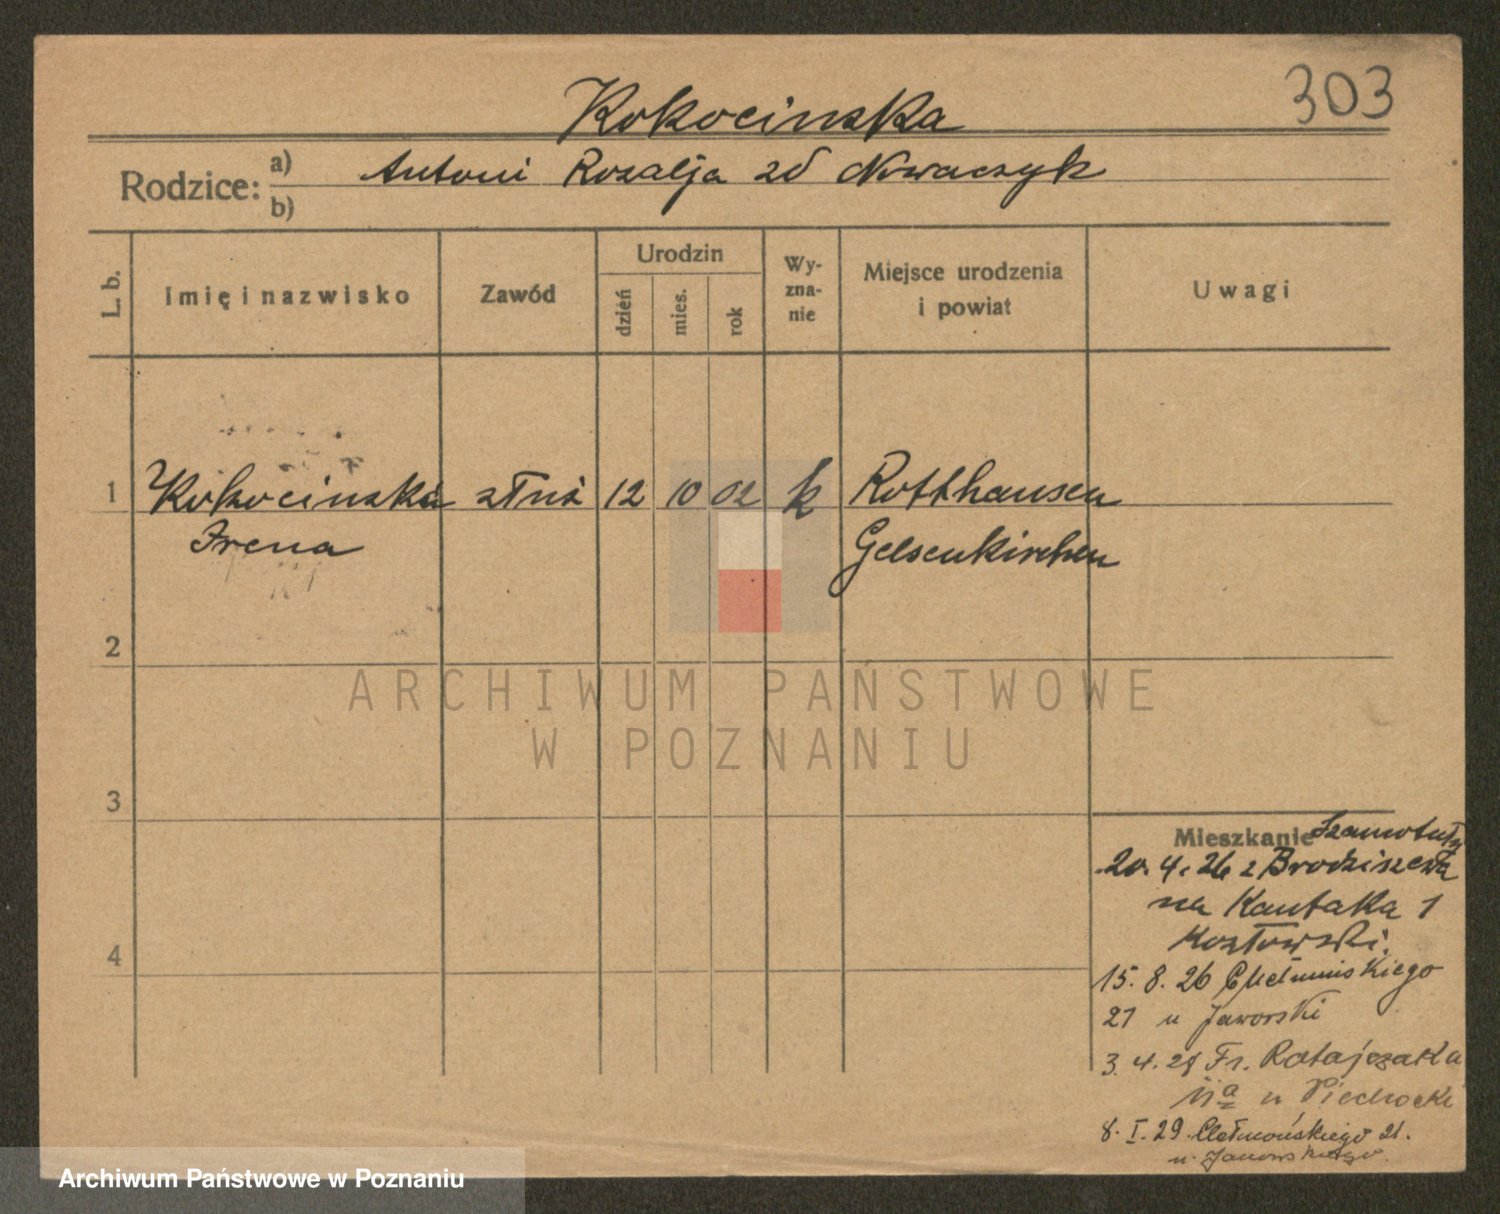 303
Kokocinska
Rodzice: a) Antoni Rozalja zd Nowaczyk
b)
L. b.
Imię i nazwisko
Zawód
Urodzin
dzień
mies.
rok
Wy-
zna-
nie
Miejsce urodzenia
i powiat
Uwagi
1 Kokocinska służ 12 10 02 k Rotthausen
Irena Gelsenkirchen
2
3
4
Mieszkanie Szamotuły
20.4.26 z Brodziszewa
na Kantaka 1
Kozłowski.
15.8.26 Chełmińskiego
21 u Jaworski
3.4.28 Fr. Ratajczaka
11a u Piechocki
8.I.29. Chełmońskiego 21.
u Jaworskiego
ARCHIWUM PAŃSTWOWE
W POZNANIU
Archiwum Państwowe w Poznaniu